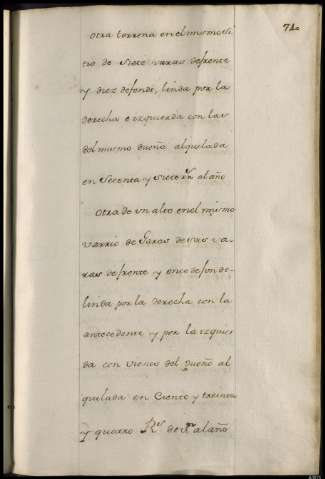 71.
Otra terrena en el mismo si
tio de Siete varas de frente
y diez de fondo, linda por la
derecha e izquierda con las
del mismo dueño alquilada
en Setenta y Siete rs. al año
Otra de un alto en el mismo
varrio de de seis va
ras de frente y once de fondo
linda por la derecha con la
antecedente y por la izquier
da con vienes del Dueño al
quilada en Ciento y treinta
y quatro Rs. de Vn. al año